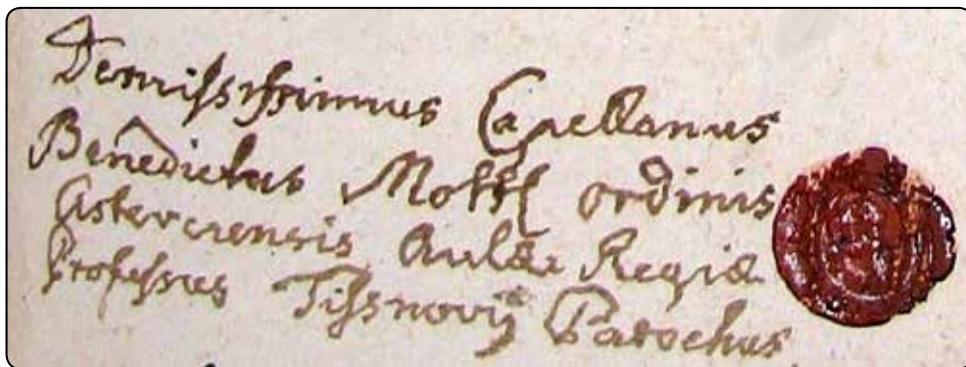 Demississimus Capellanus
Benedictus Mottl ordinis
Cisterciensis Aulæ Regiæ
Professus Tissnovij Parochus